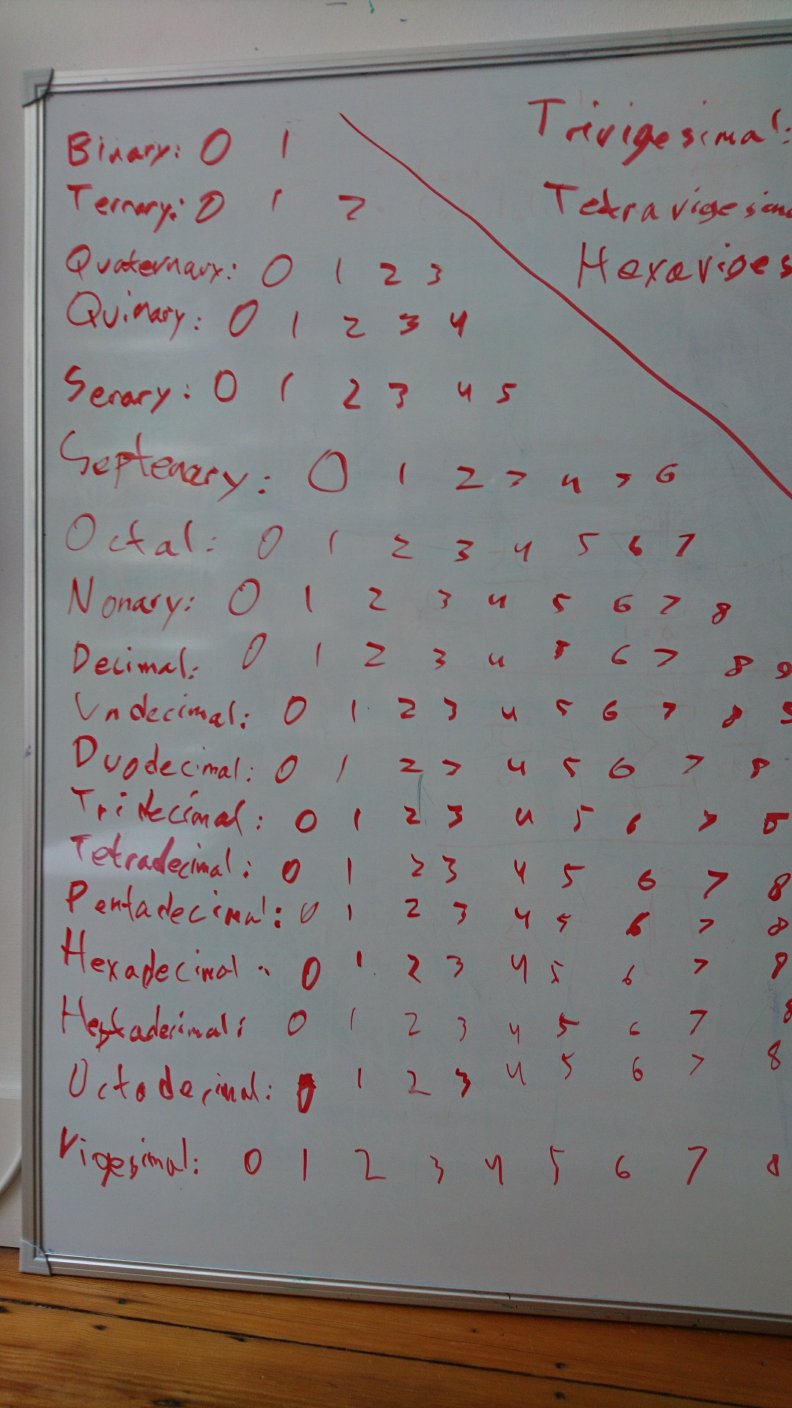 Binary: 0 1
Ternary: 0 1 2
Quaternary: 0 1 2 3
Quinary: 0 1 2 3 4
Senary: 0 1 2 3 4 5
Septenary: 0 1 2 3 4 5 6
Octal: 0 1 2 3 4 5 6 7
Nonary: 0 1 2 3 4 5 6 7 8
Decimal: 0 1 2 3 4 5 6 7 8 9
Undecimal: 0 1 2 3 4 5 6 7 8 9
Duodecimal: 0 1 2 3 4 5 6 7 8
Tridecimal: 0 1 2 3 4 5 6 7 8
Tetradecimal: 0 1 2 3 4 5 6 7 8
Pentadecimal: 0 1 2 3 4 5 6 7 8
Hexadecimal: 0 1 2 3 4 5 6 7 8
Heptadecimal: 0 1 2 3 4 5 6 7 8
Octodecimal: 0 1 2 3 4 5 6 7 8
Vigesimal: 0 1 2 3 4 5 6 7 8
Trivigesimal:
Tetravigesima
Hexaviges